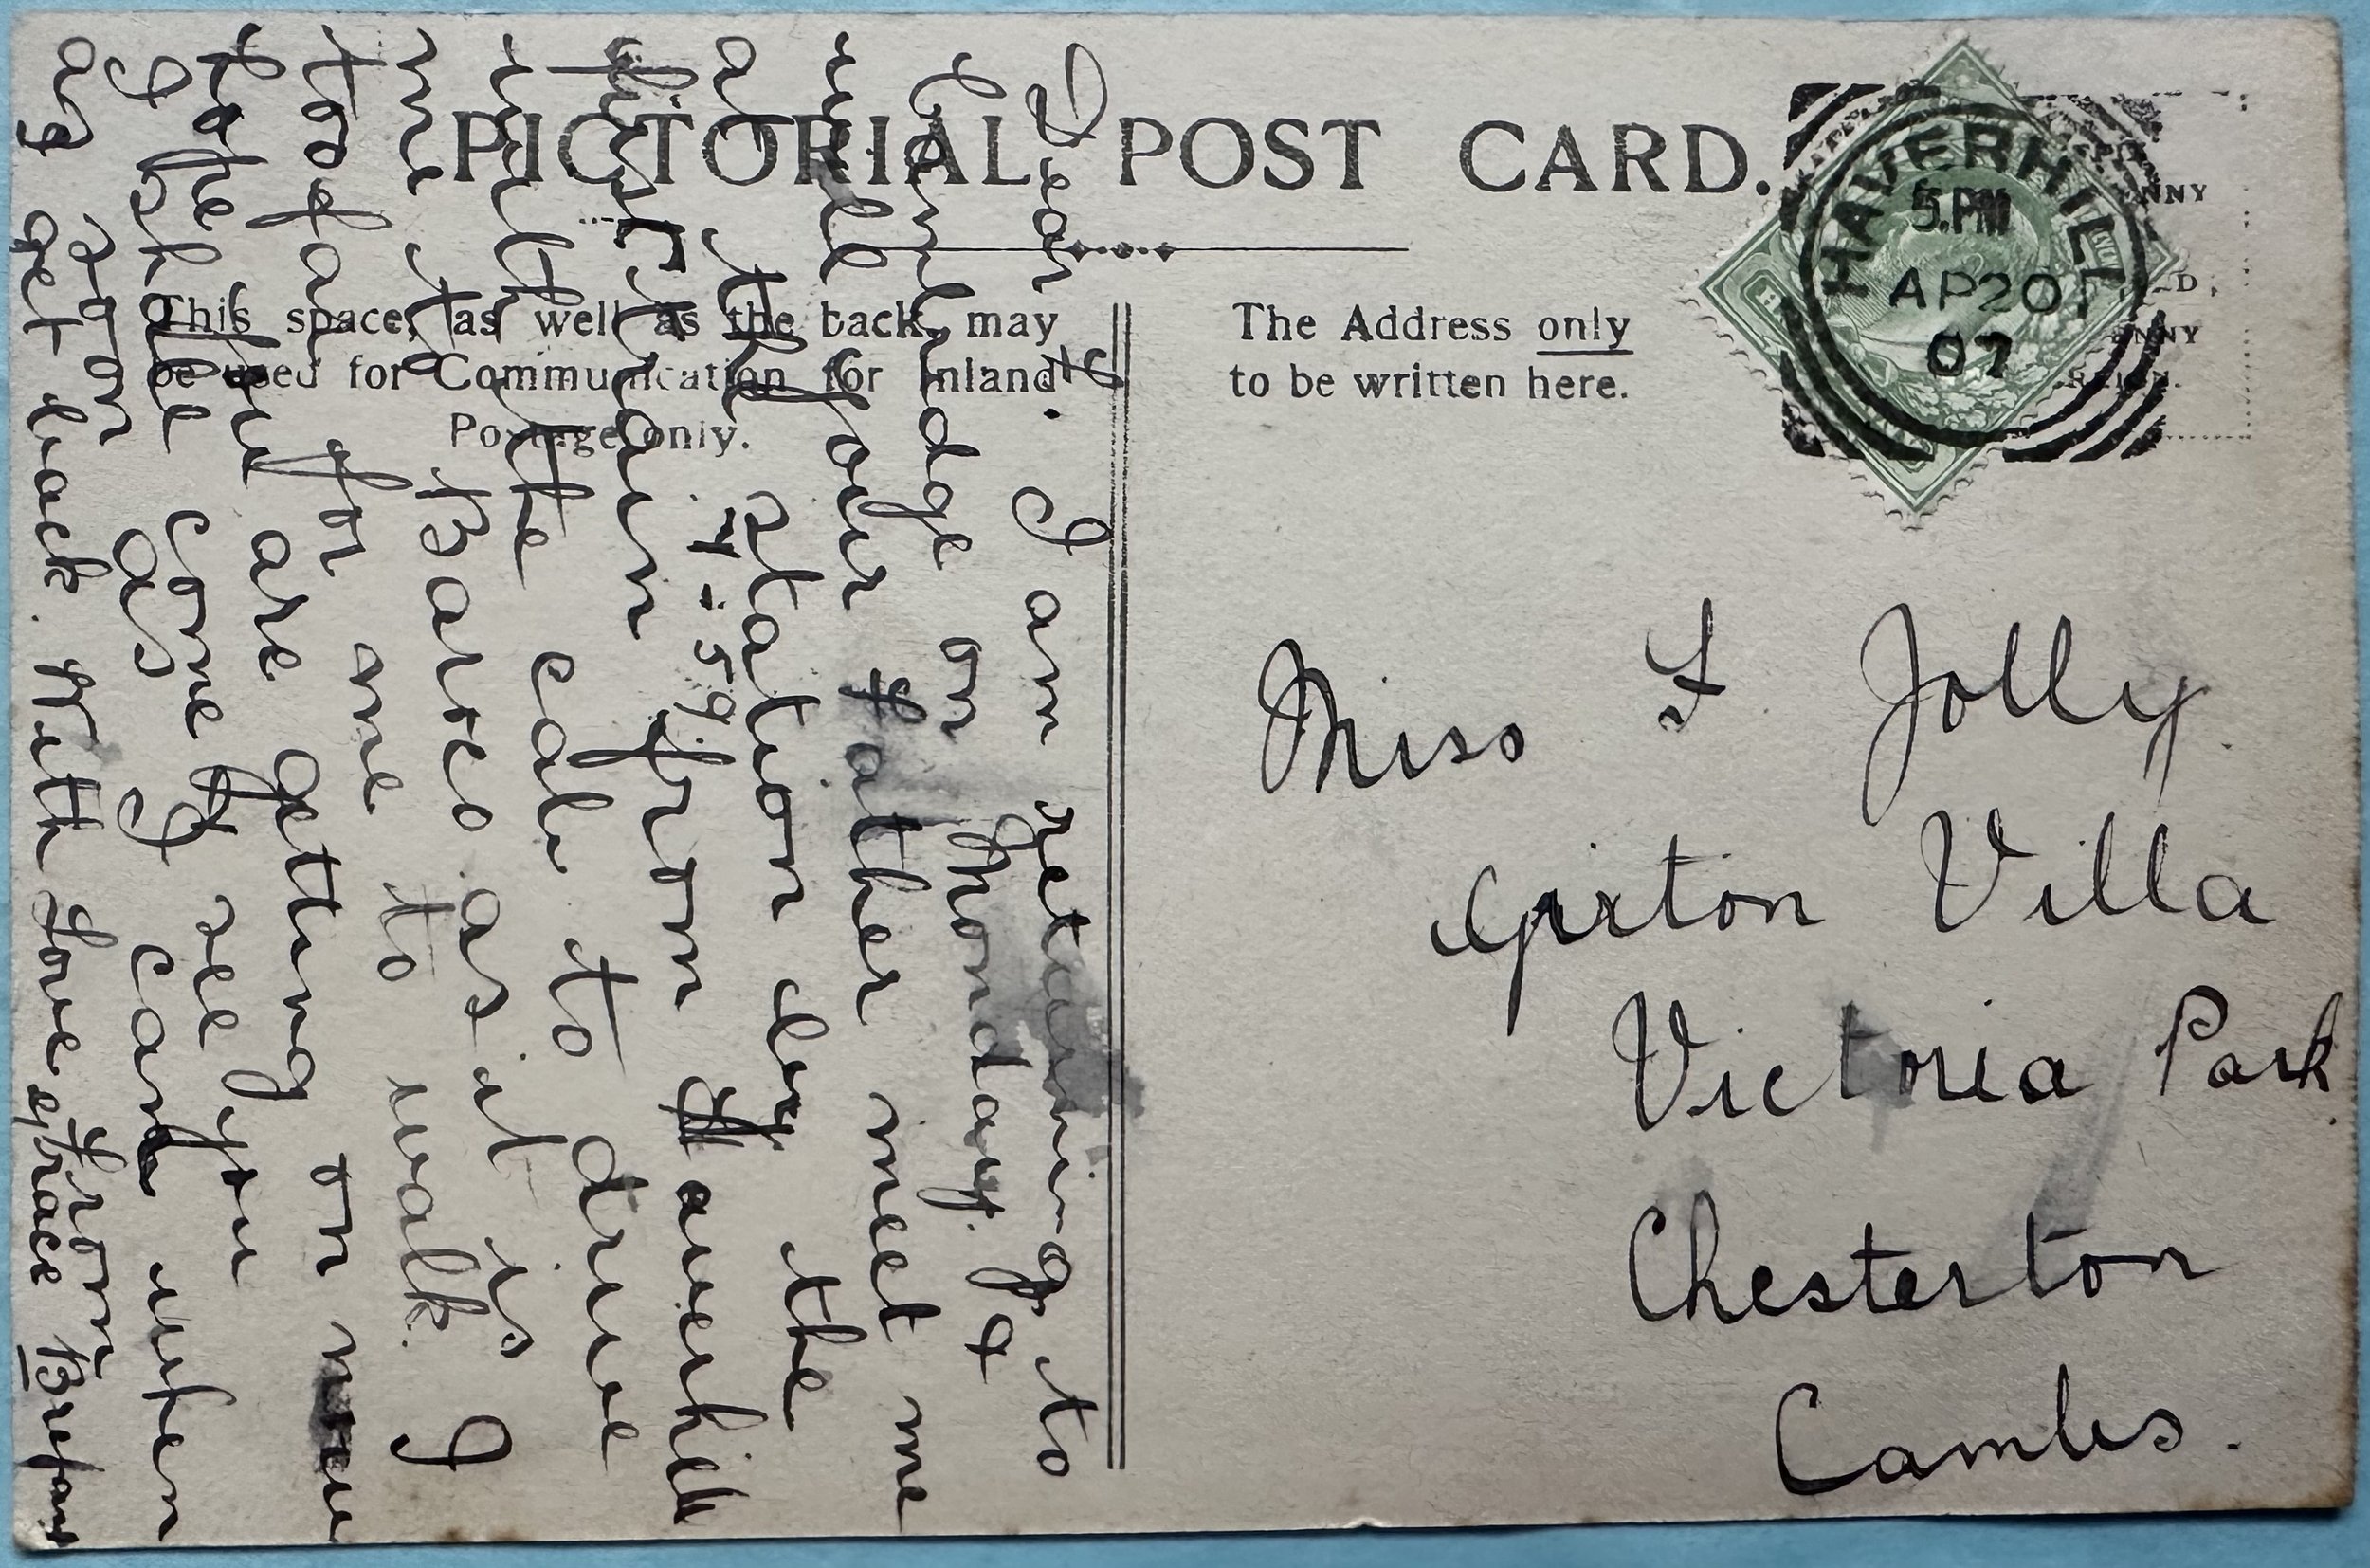 PICTORIAL POST CARD.
This space, as well as the back, may
be used for Communication for Inland
Postage only.
The Address only
to be written here.
HAVERHILL
5.PM
AP20
07
Miss F Jolly
Girton Villa
Victoria Park.
Chesterton
Cambs.
Dear F. I am returning to
Cambridge on Monday. &
will your Father meet me
at the station by the
4-59
first train from Haverhill
with the cab to drive
me to Bares as it is
too far for me to walk. I
hope you are getting on now
I shall come & see you
as soon as I can when
I get back. With Love from
Grace